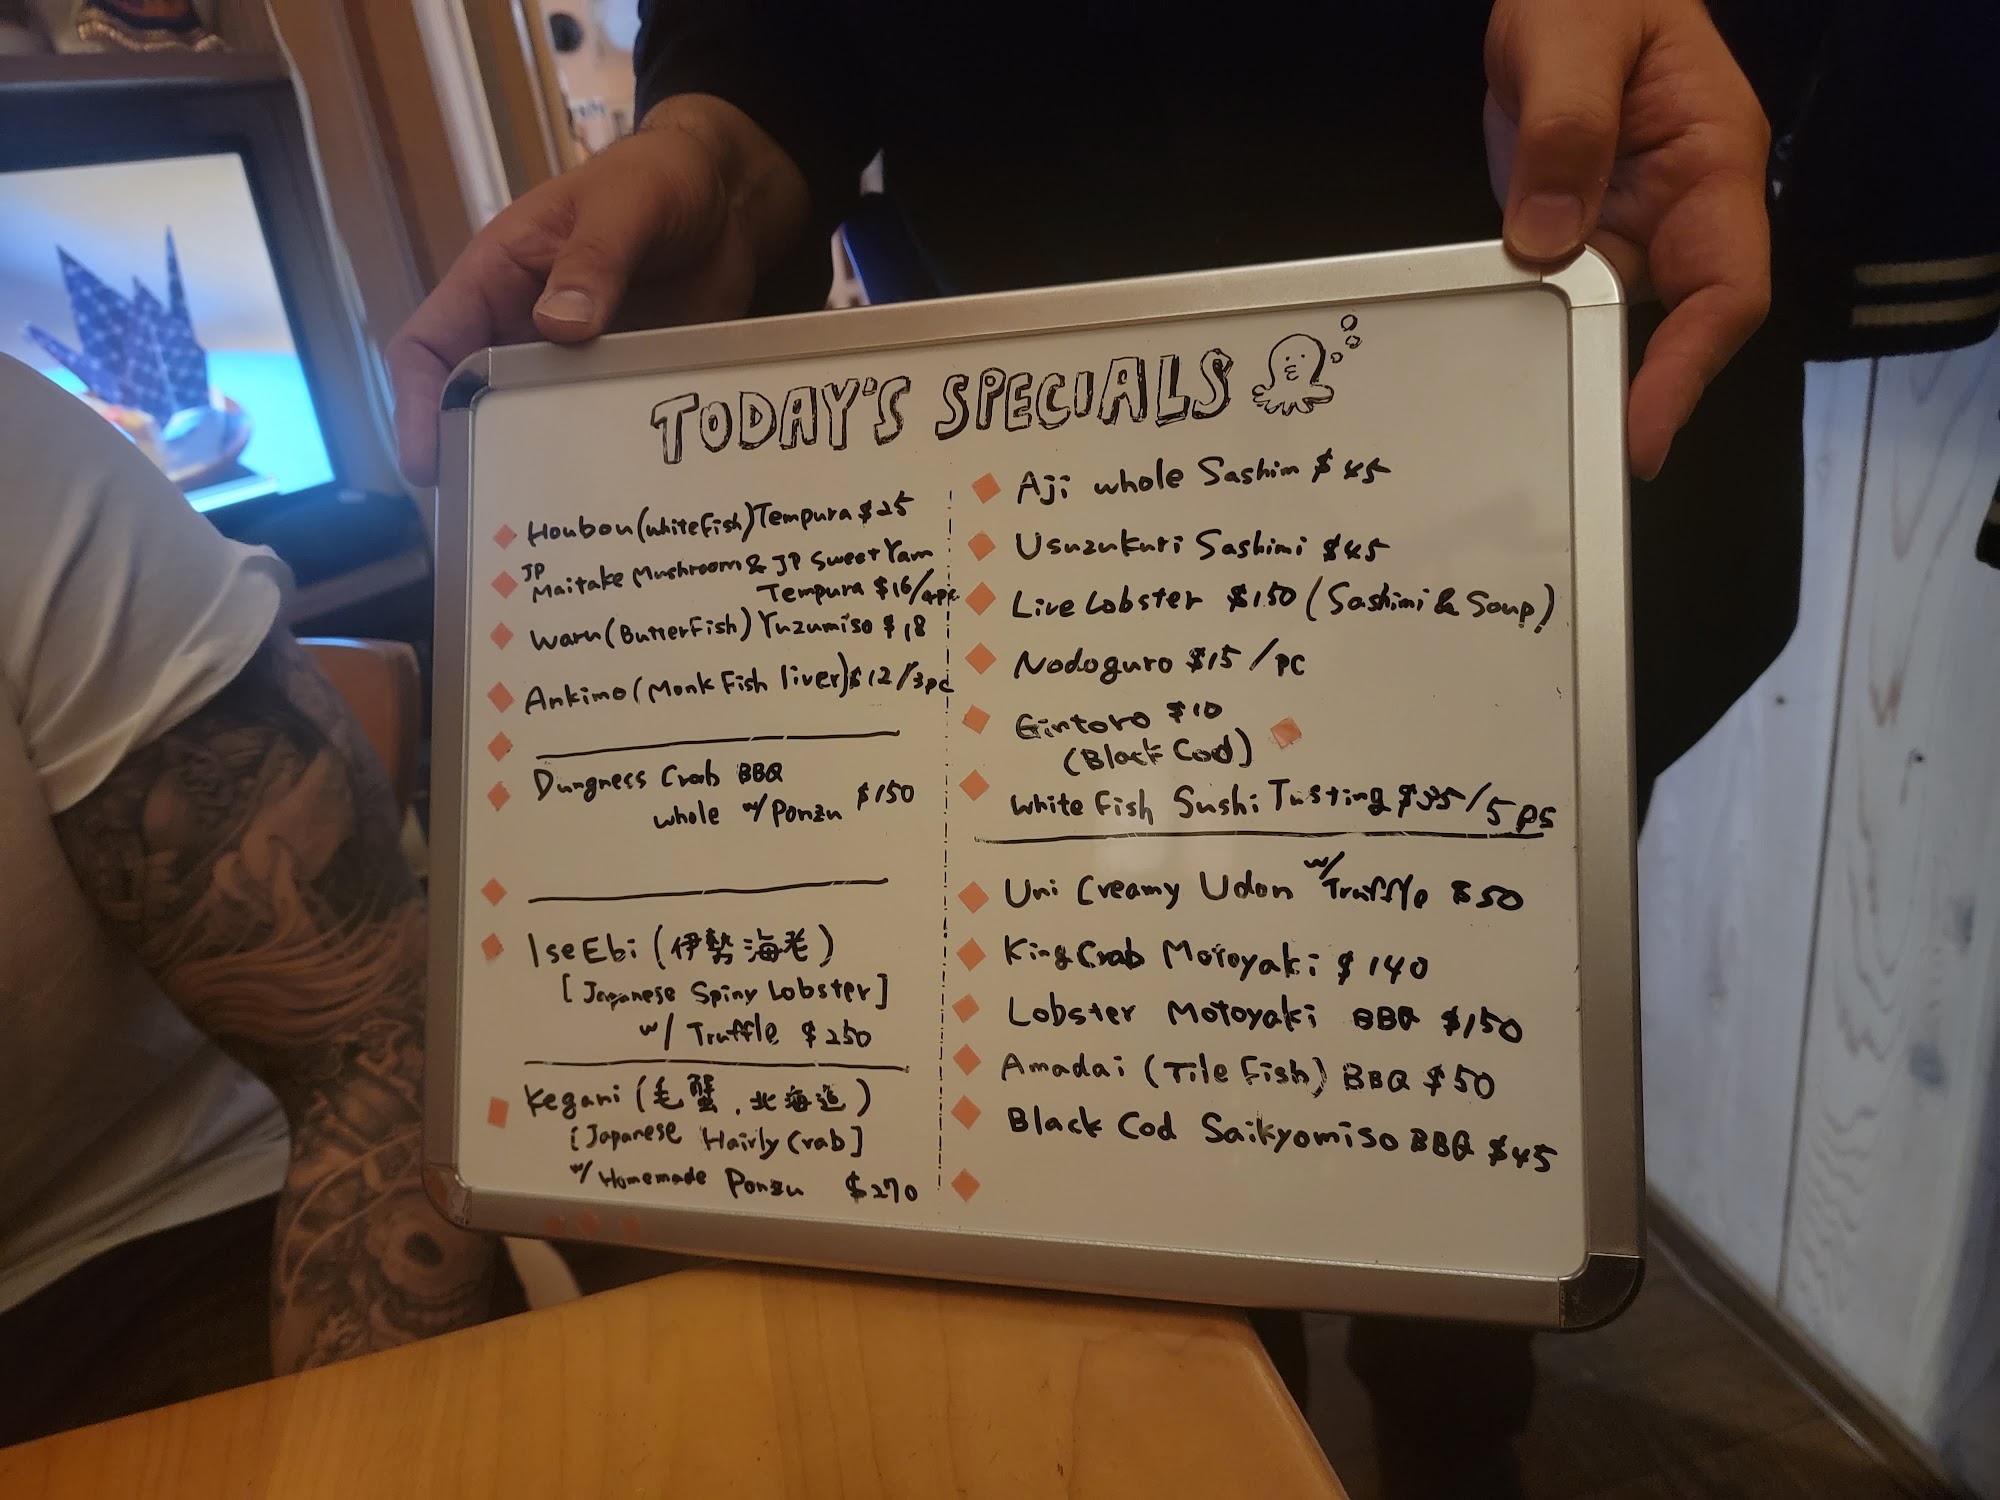 TODAY'S SPECIALS
Houbou (white Fish) Tempura $25
JP
Maitake Mushroom & JP Sweet Yam
Tempura $16/4pc
Waru (ButterFish) Yuzumiso $18
Ankimo (Monk Fish liver) $12/3pc
Dungness Crab BBQ
whole w/ Ponzu $150
Ise Ebi (伊勢海老)
[Japanese Spiny Lobster]
w/ Truffle $250
Kegani (毛蟹, 北海道)
[Japanese Hairly Crab]
w/ Homemade Ponzu $270
Aji whole Sashim $45
Usuzukuri Sashimi $45
Live Lobster $150 (Sashimi & Soup)
Nodoguro $15/pc
Gintoro $10
(Black Cod)
White Fish Sushi Tasting $35/5ps
Uni Creamy Udon w/ Truffle $50
King Crab Motoyaki $140
Lobster Motoyaki BBQ $150
Amadai (Tile Fish) BBQ $50
Black Cod Saikyomiso BBQ $45